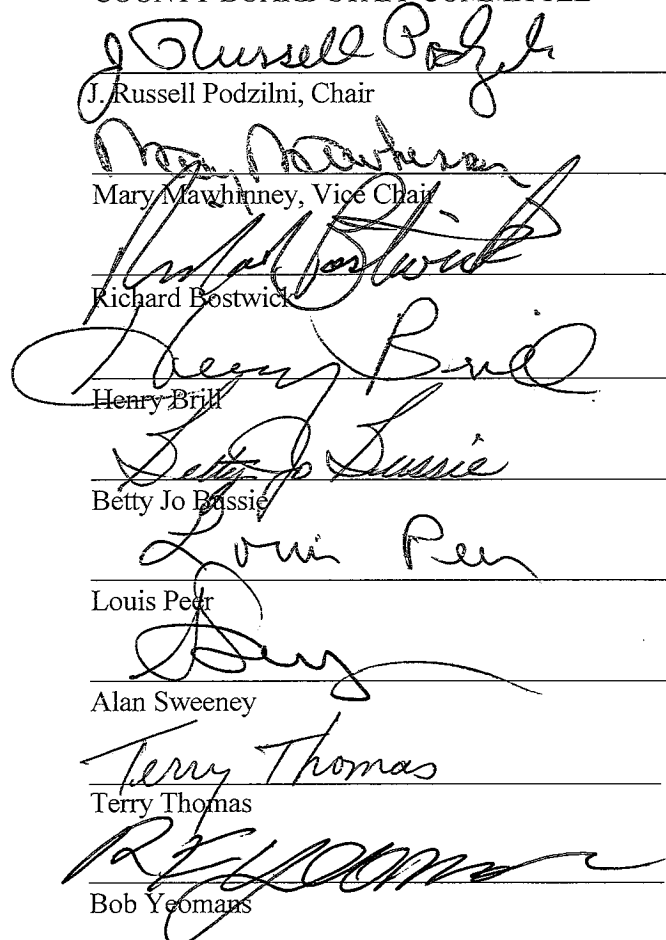 COUNTY BOARD STAFF COMMITTEE
J Russell Podzilni
J. Russell Podzilni, Chair
Mary Mawhinney
Mary Mawhinney, Vice Chair
Richard Bostwick
Richard Bostwick
Henry Brill
Henry Brill
Betty Jo Bussie
Betty Jo Bussie
Louis Peer
Louis Peer
Alan Sweeney
Terry Thomas
Terry Thomas
R E Yeomans
Bob Yeomans